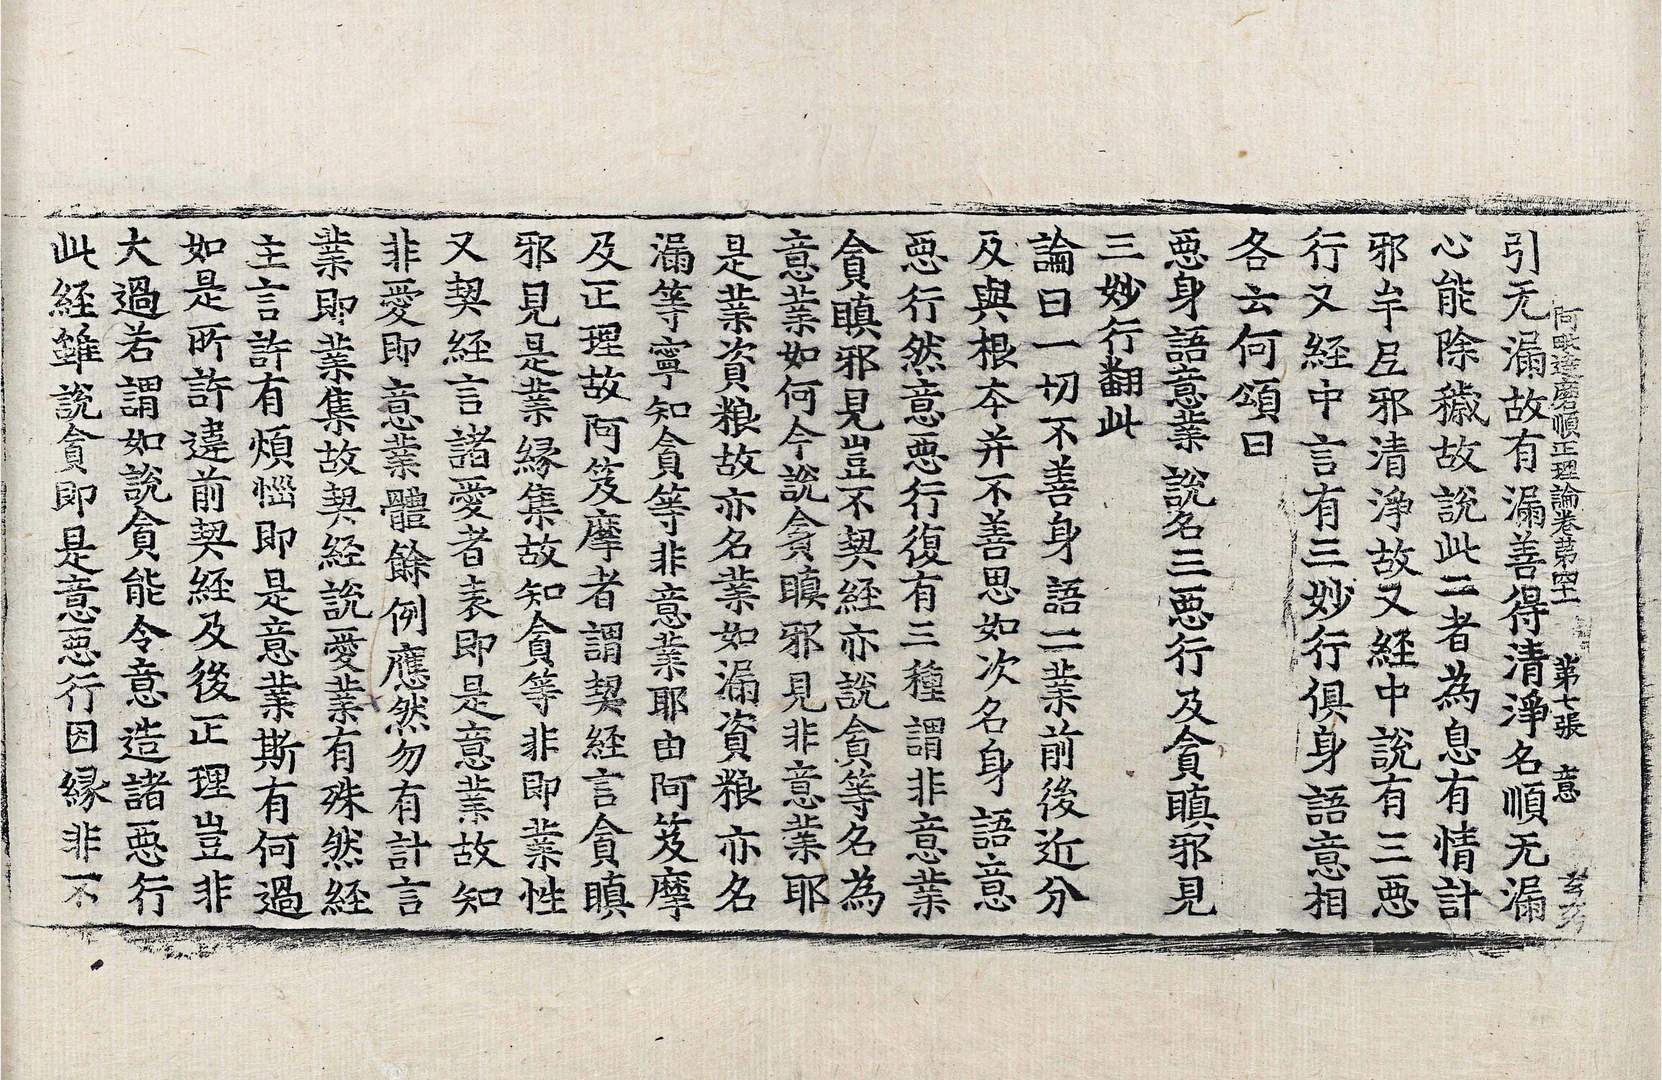 阿毗達磨順正理論卷第四十一 第七張 意
引无漏故有漏善得清淨名順无漏
心能除穢故說此二者為息有情計
邪牟尼邪清淨故又經中說有三惡
行又經中言有三妙行俱身語意相
各云何頌曰
惡身語意業說名三惡行及貪瞋邪見
三妙行翻此
論曰一切不善身語二業前後近分
及與根本并不善思如次名身語意
惡行然意惡行復有三種謂非意業
貪瞋邪見豈不契經亦說貪等名為
意業如何今說貪瞋邪見非意業耶
是業資粮故亦名業如漏資粮亦名
漏等寧知貪等非意業耶由阿笈摩
及正理故阿笈摩者謂契經言貪瞋
邪見是業緣集故知貪等非即業性
又契經言諸愛者表即是意業故知
非愛即意業體餘例應然勿有計言
業即業集故契經說愛業有殊然經
主言許有煩惱即是意業斯有何過
如是所許違前契經及後正理豈非
大過若謂如說貪能令意造諸惡行
此經雖說貪即是意惡行因緣非不